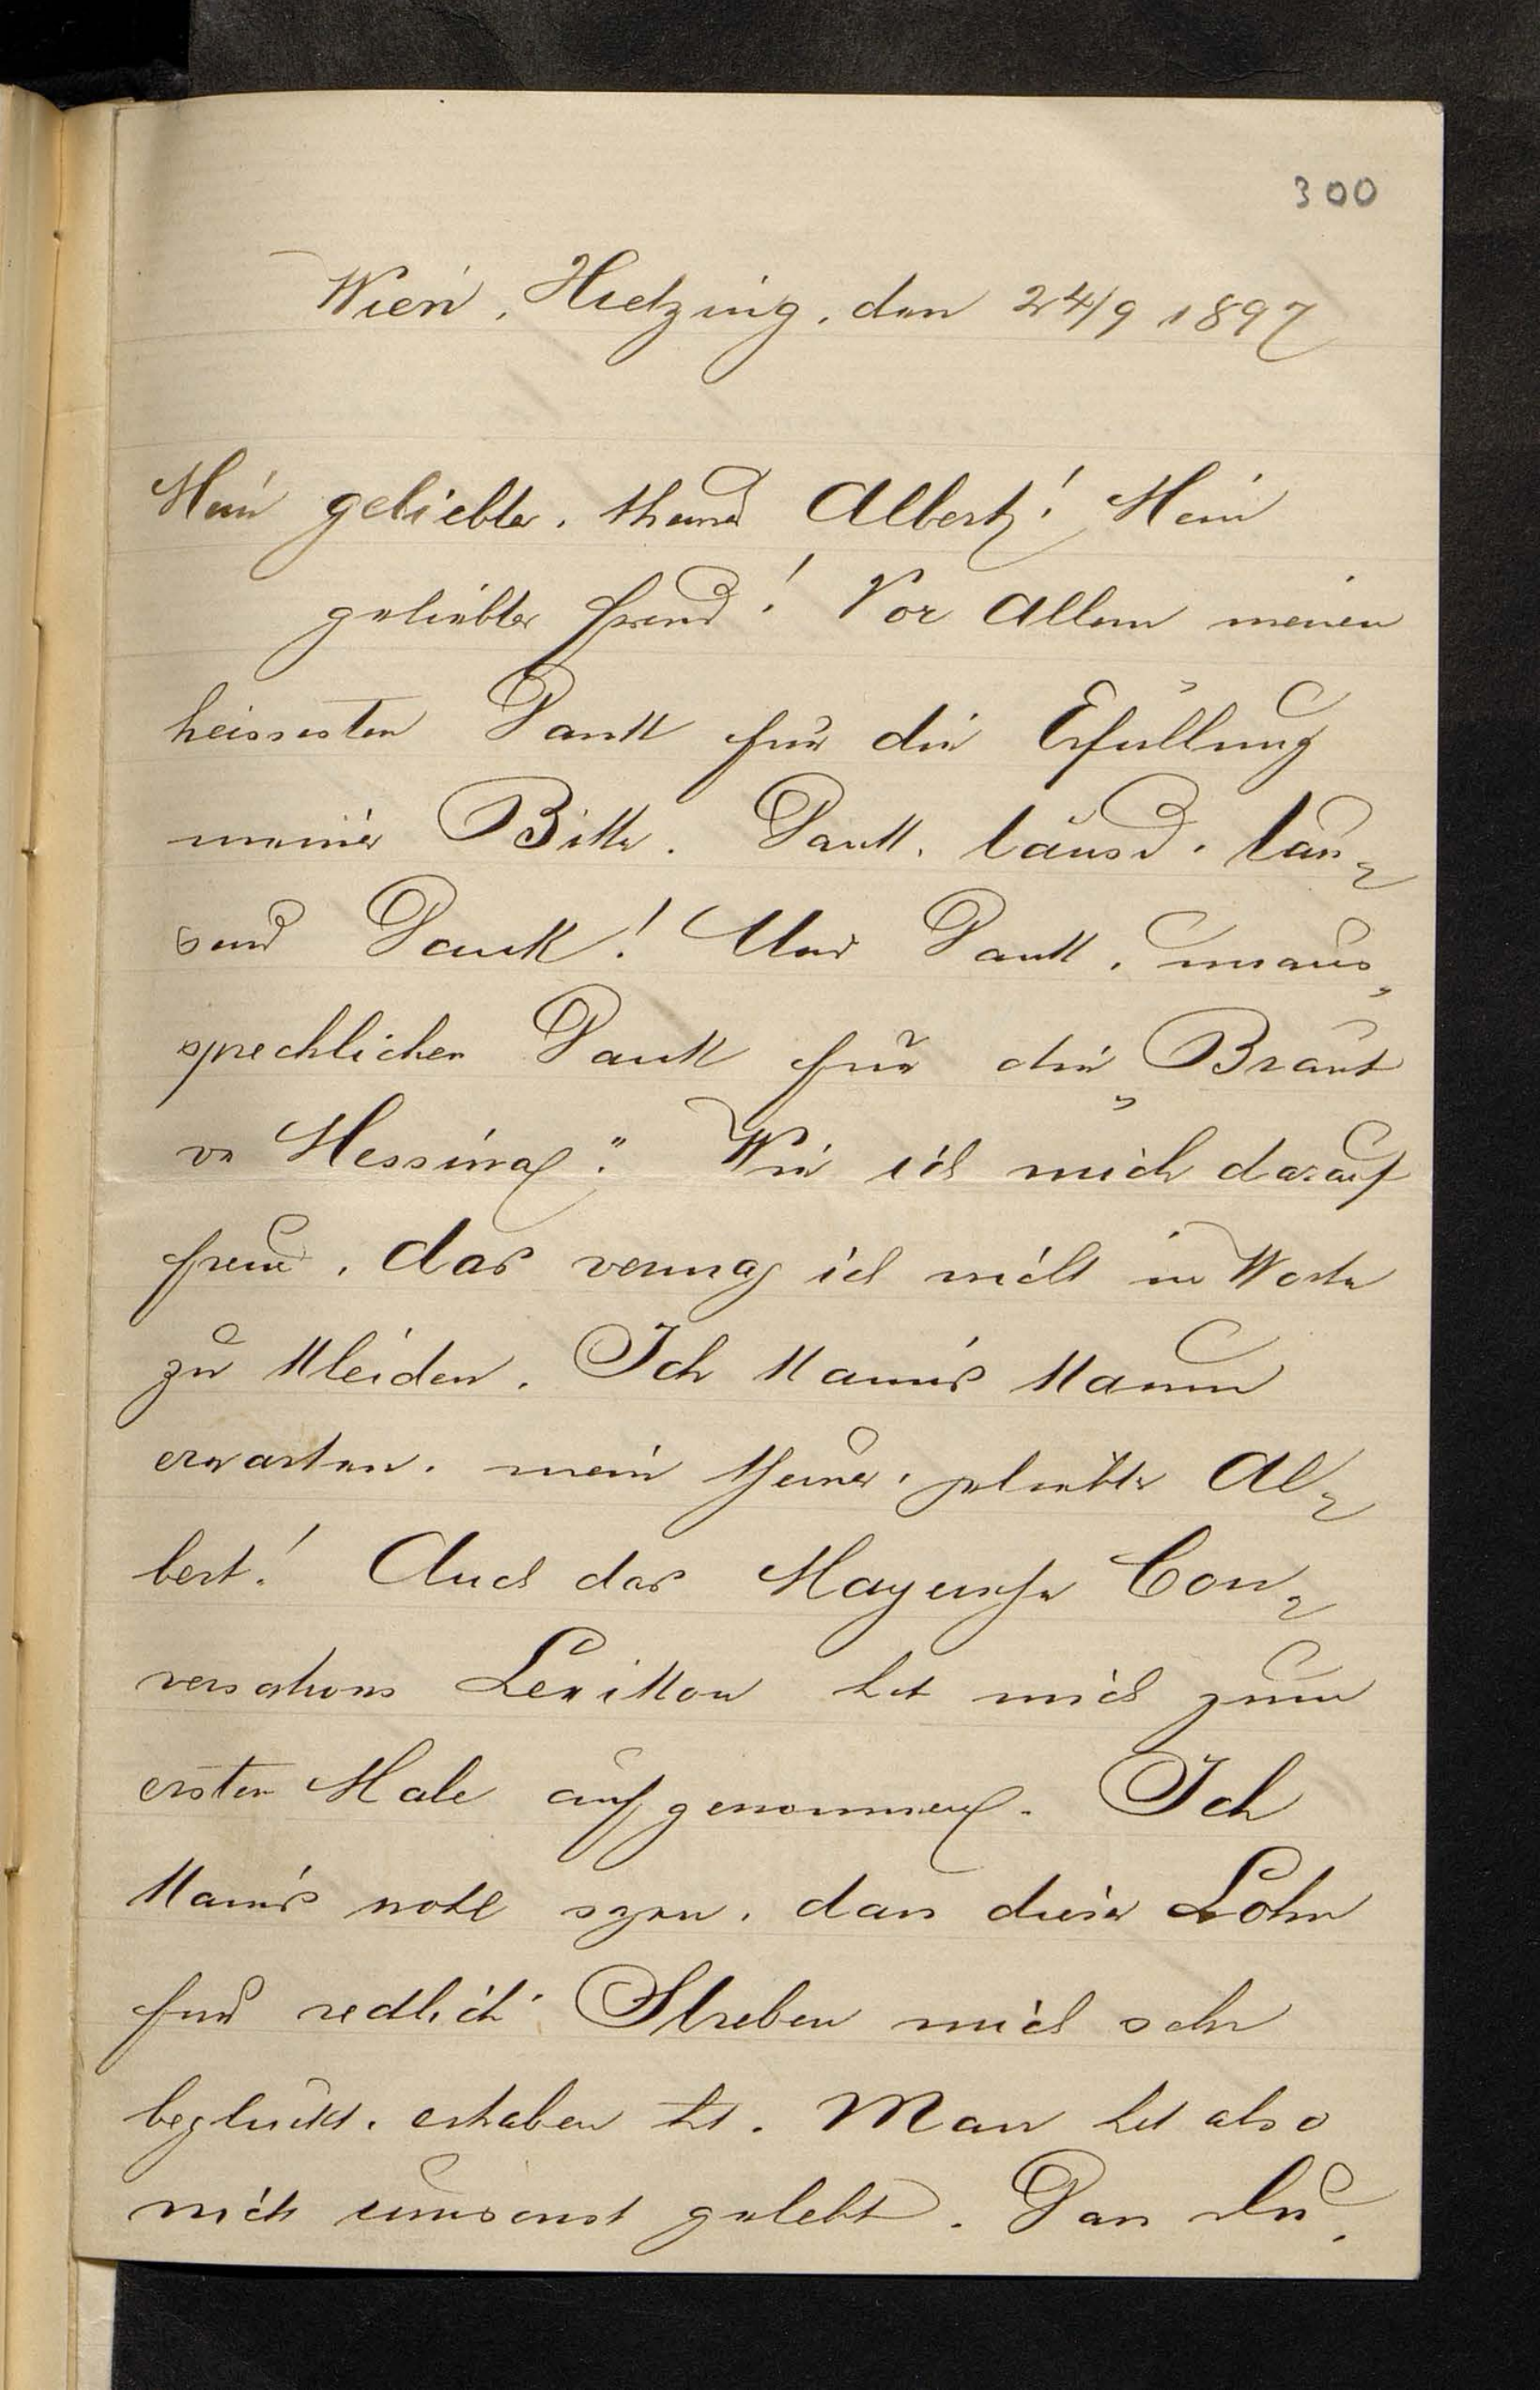 300
Wien, Hietzing, den 24/9 1897
Mein geliebter, theurer Albert! Mein
geliebter Freund! Vor Allem meinen
heissesten Dank für die Erfüllung
meiner Bitte. Dank, tausend, tau-
send Dank! Und Dank, unaus„
sprechlichen Dank für die „Braut
von Messina". Wie ich mich darauf
freue, das vermag ich nicht in Worte
zu kleiden. Ich kann's kaum
erwarten, mein theurer, geliebter Al-
bert! Auch das Mayersche Con-
versations Lexikon hat mich zum
ersten Male aufgenommen. Ich
kann's wohl sagen, dass dieser Lohn
für redliches Streben mich sehr
beglückt, erhaben hat. Man hat also
nicht umsonst gelebt. Dass Du,